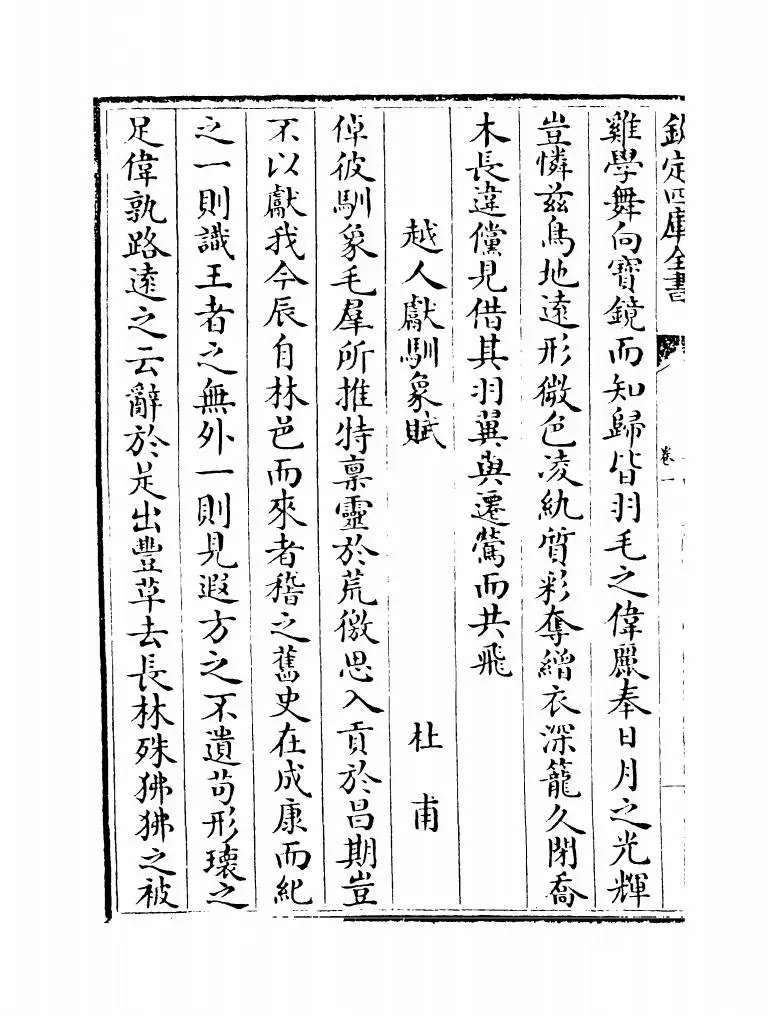 欽定四庫全書
卷一
雞學舞向寶鏡而知歸皆羽毛之偉麗奉日月之光輝
豈憐兹鳥地遠形微色凌紈質彩奪繒衣深籠久閉喬
木長違儻見借其羽翼與遷鶯而共飛
越人獻馴象賦
杜甫
倬彼馴象毛羣所推特禀靈於荒徼思入貢於昌期豈
不以獻我今辰自林邑而來者稽之舊史在成康而紀
之一則識王者之無外一則見遐方之不遺茍形瓌之
足偉孰路逺之云辭於是出豐草去長林殊狒狒之被